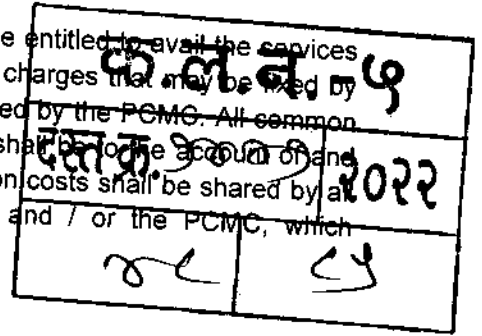 e entitled to avail the services
क.ल.न. - ५
charges that may be fixed by
ed by the PCMC. All common
shall be to the account of and
दस्त क्र. २०२२
on costs shall be shared by al
and / or the PCMC, which
८५